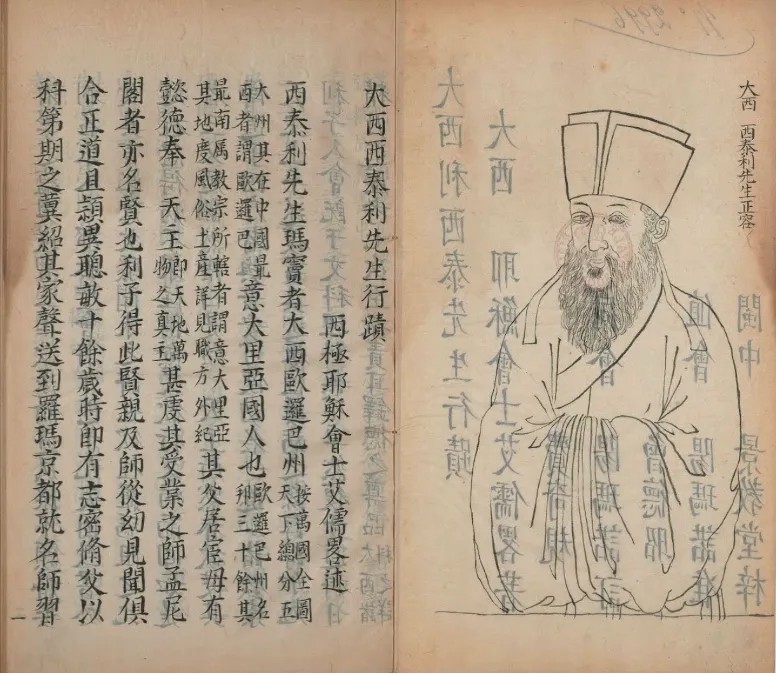 大西 西泰利先生正容
大西西泰利先生行蹟
西極耶穌會士艾儒畧述
西泰利先生瑪竇者大西歐邏巴州按萬國全圖天下總分五
大州其在中國最西者謂歐邏巴意大里亞國人也歐邏巴州名邦三十餘其
最南屬教宗所轄者謂意大里亞其地度風俗土產詳見職方外紀其父居官毋有
懿德奉 天主卽天地萬物之真主甚虔其受業之師孟尼
閣者亦名賢也利子得此賢親及師從幼見聞俱
合正道且穎異聰敏十餘歲時即有志密脩父以
科第期之冀紹其家聲送到羅瑪京都就名師習
一